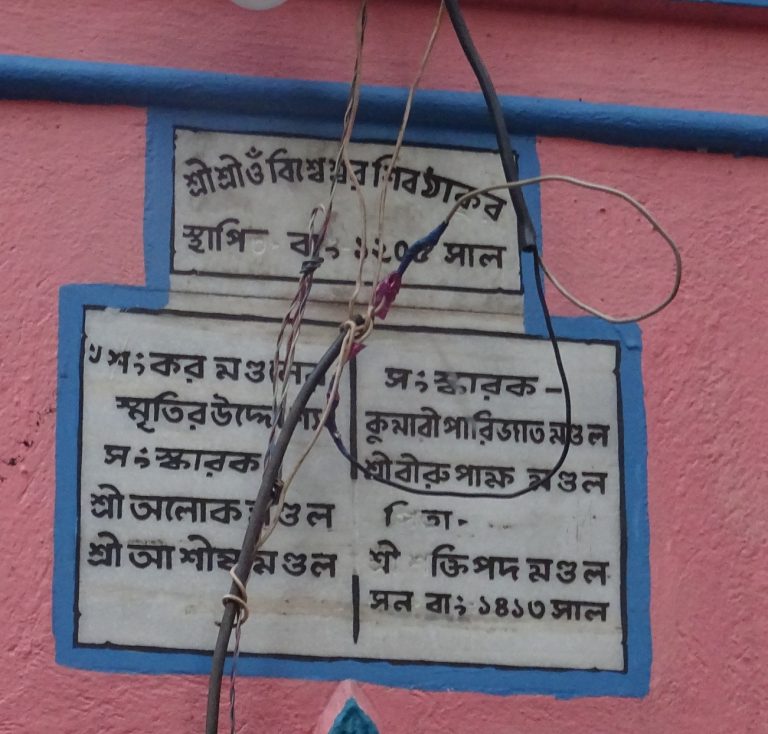 শ্রীশ্রীওঁ বিশ্বেশ্বর শিব ঠাকুর
স্থাপি বাং ১২০৫ সাল
ঁশংকর মণ্ডলের
স্মৃতির উদ্দেশ্যে
সংস্কারক
শ্রী অলোক মণ্ডল
শ্রী আশীষ মণ্ডল
সংস্কারক -
কুমারী পারিজাত মণ্ডল
শ্রী বীরুপাক্ষ মণ্ডল
পিতা -
শ্রী ক্তিপদ মণ্ডল
সন বাং ১৪১৩ সাল